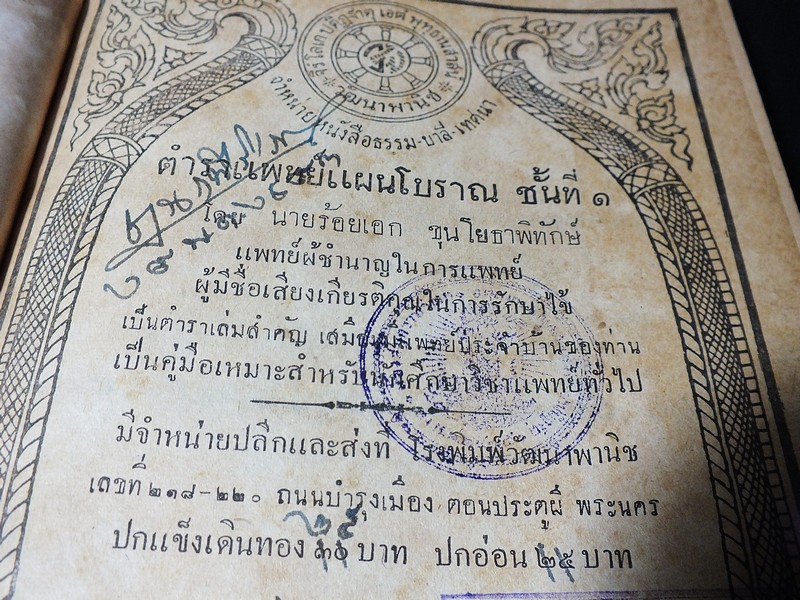 วัฒนาพานิช
จำหน่ายหนังสือธรรม-บาลี-เทศนา
ตำราแพทย์แผนโบราณ ชั้นที่ ๑
โดย นายร้อยเอก ขุนโยธาพิทักษ์
แพทย์ผู้ชำนาญในการแพทย์
ผู้มีชื่อเสียงเกียรติคุณในการรักษาไข้
เป็นตำราเล่มสำคัญ เสมือนแพทย์ประจำบ้านของท่าน
เป็นคู่มือเหมาะสำหรับนักศึกษาวิชาแพทย์ทั่วไป
มีจำหน่ายปลีกและส่งที่ โรงพิมพ์วัฒนาพานิช
เลขที่ ๒๑๘-๒๒๐ ถนนบำรุงเมือง ตอนประตูผี พระนคร
ปกแข็งเดินทอง บาท ปกอ่อน ๒๕ บาท